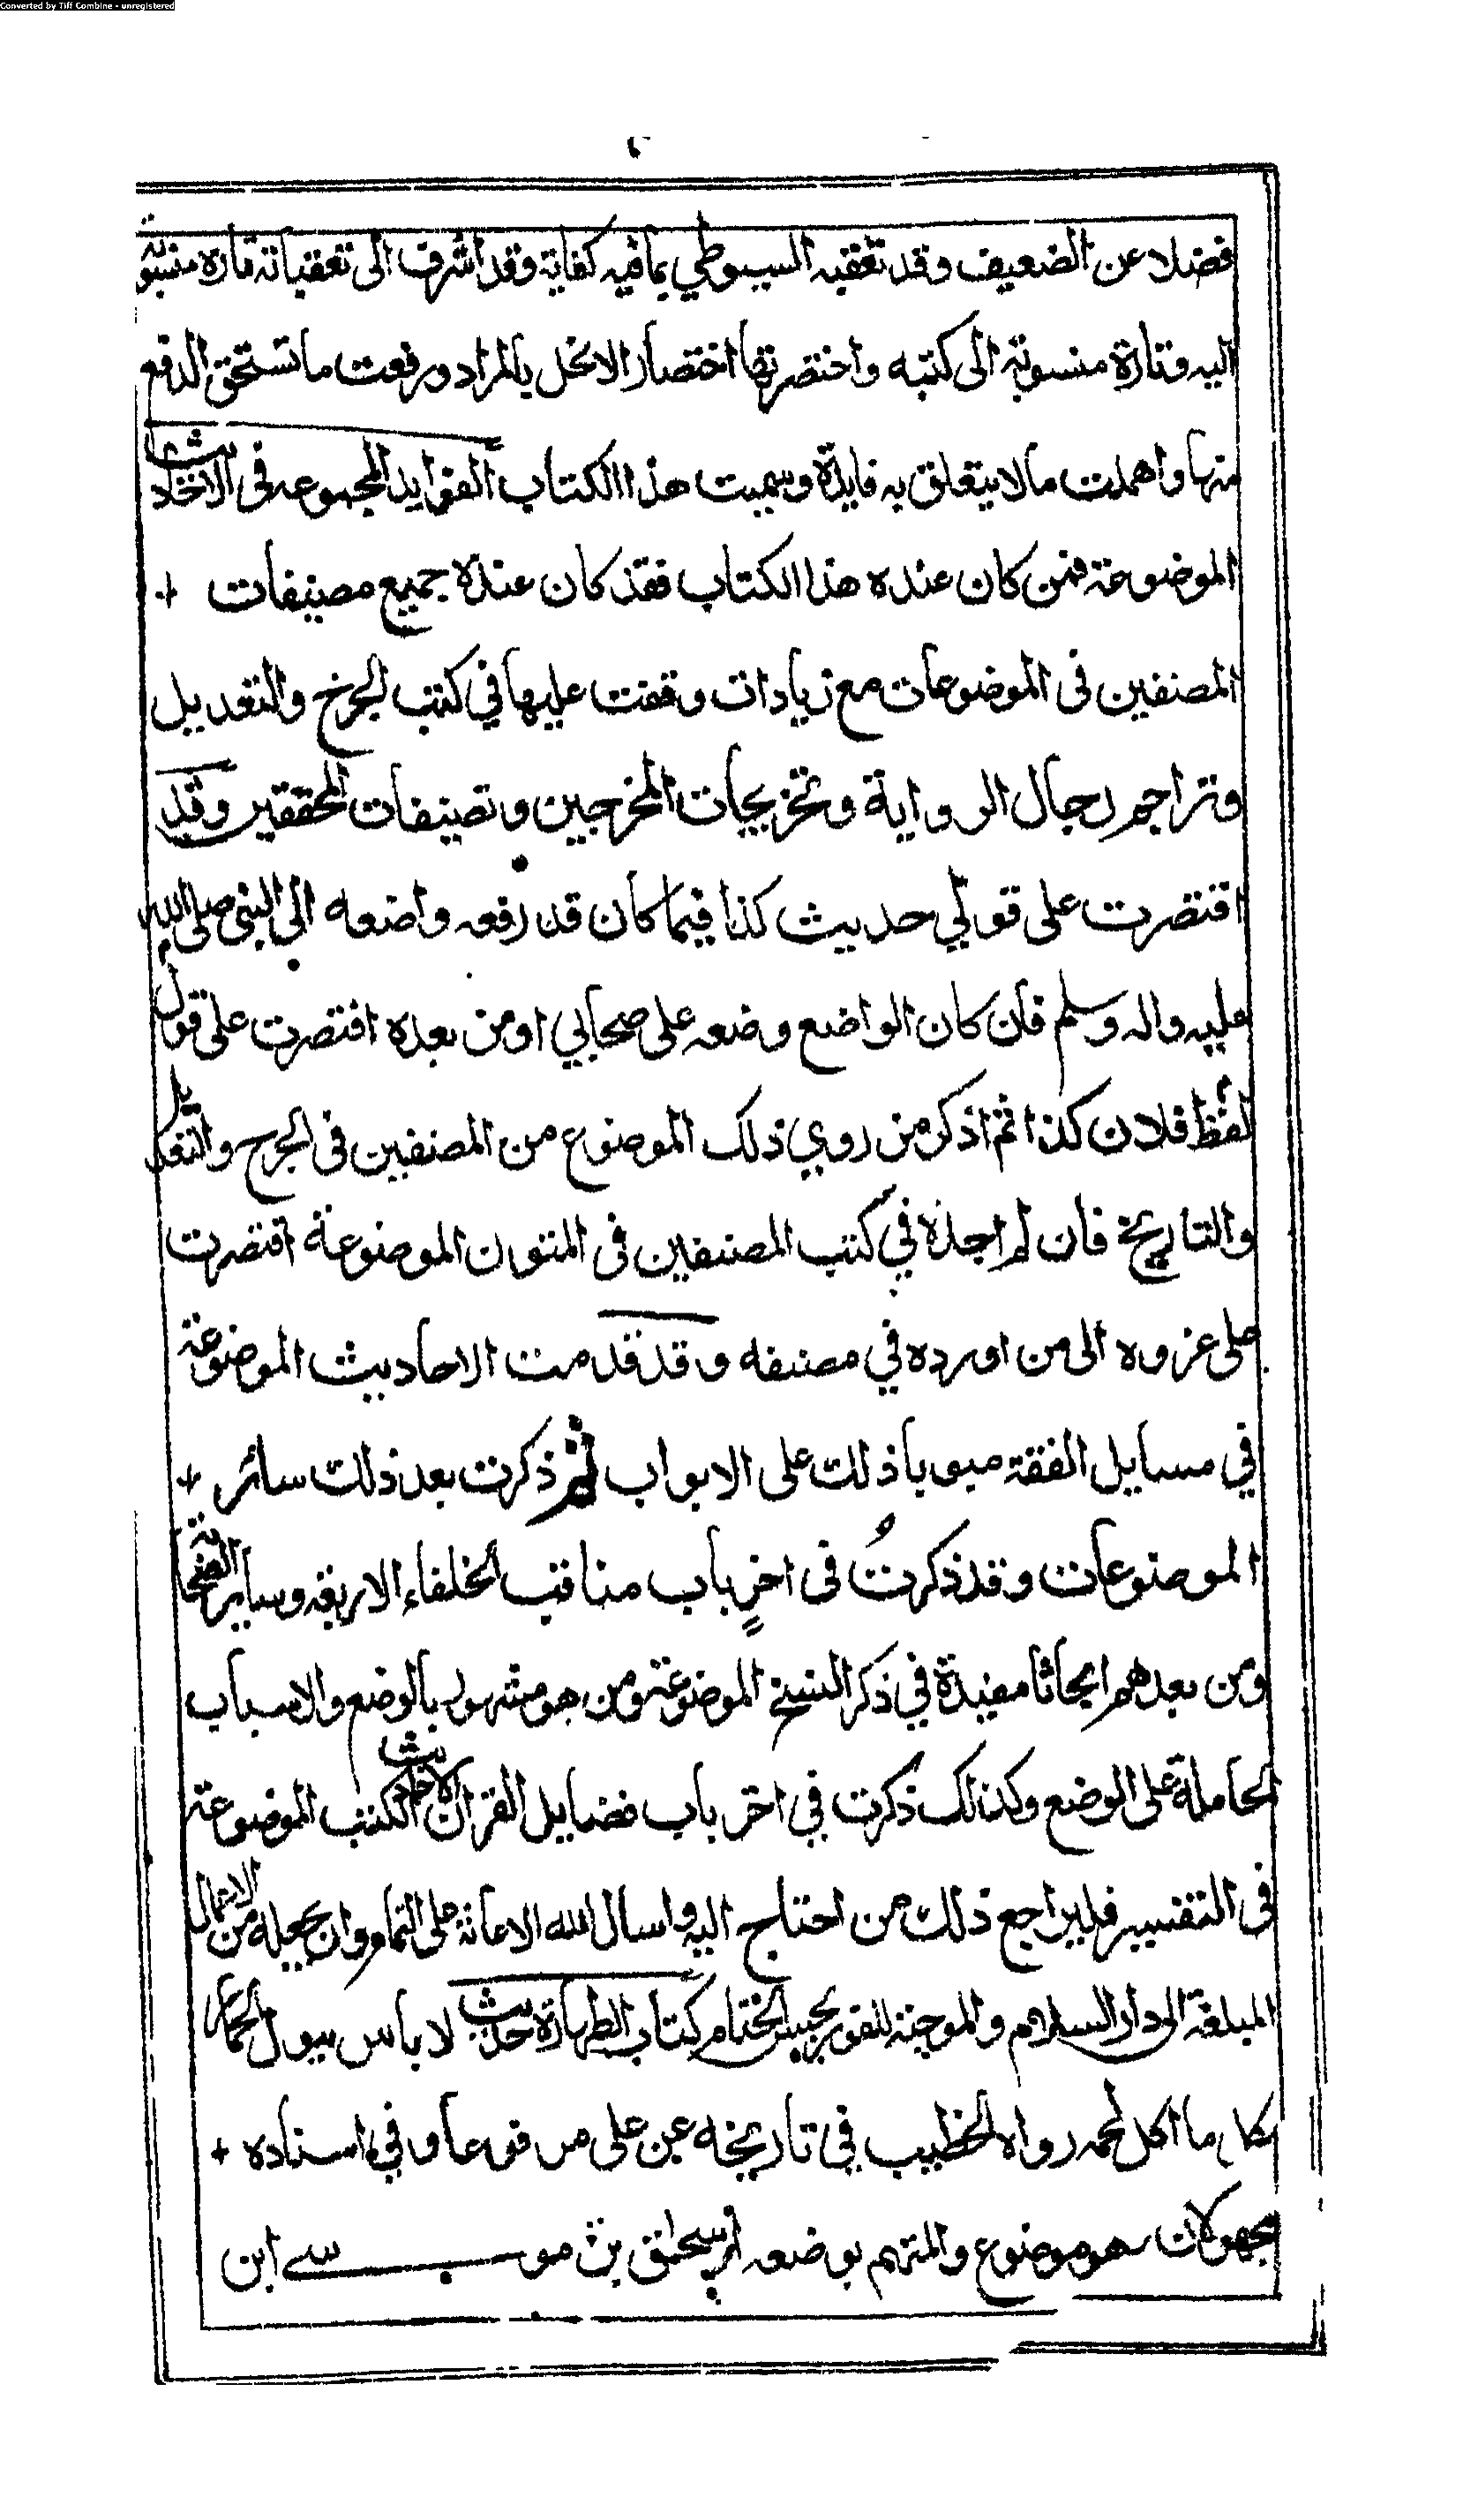 Converted by Tiff Combine - unregistered
فضلا عن الضعيف وقد تعقبه السيوطي بما فيه كفاية وقد اشرف الى تعقباته تارة منسوبة
اليه وتارة منسوبة الى كتبه واختصرتها اختصارا لا يخل بالمراد ورفعت ما تستحق الدفع
منها واهملت مالا يتعلق به فايدة وسميت هذا الكتاب الفوايد المجموعه فى الاحاديث
الموضوعة فمن كان عنده هذا الكتاب فقد كان عنده جميع مصنفات
المصنفين فى الموضوعات مع زيادات وقفت عليها في كتب الجرح والتعديل
وتراجم رجال الرواية وتخريجات المخرجين وتصنيفات المحققين وقد
اقتصرت على قولي حديث كذا فيما كان قد رفعه واضعه الى النبي صلى الله
عليه واله وسلم فان كان الواضع وضعه على صحابي او من بعده اقتصرت على قول
لفظ فلان كذا ثم اذكر من روي ذلك الموضوع من المصنفين فى الجرح والتعديل
والتاريخ فان لم اجده في كتب المصنفين فى المتون الموضوعة اقتصرت
على عزوه الى من اورده في مصنفه وقد قدمت الاحاديث الموضوعة
في مسايل الفقة مبوبا ذلك على الابواب ثم ذكرت بعد ذلك سائر
الموضوعات وقد ذكرتُ فى اخرٍ باب مناقب الخلفاء الاربعه وساير الصحابة
ومن بعدهم ابحاثا مفيدة في ذكر النسخ الموضوعة ومن هو مشهور بالوضع والاسباب
الحاملة على الوضع وكذلك ذكرت في اخر باب فضايل القران الاحاديث الكتب الموضوعة
فى التفسير فليراجع ذلك من احتاج اليه واسال الله الاعانة على التمام وان يجعله من الاعمال
المبلغة الى دار السلام والموجبة للفوز بحسن الختام كتاب الطهارة حديث لا باس ببول الحمار
وكل ما اكل لحمه رواه الخطيب في تاريخه عن على مرفوعا وفي اسناده
مجهولان هو موضوع والمتهم بوضعه اسحق بن موسى ابن